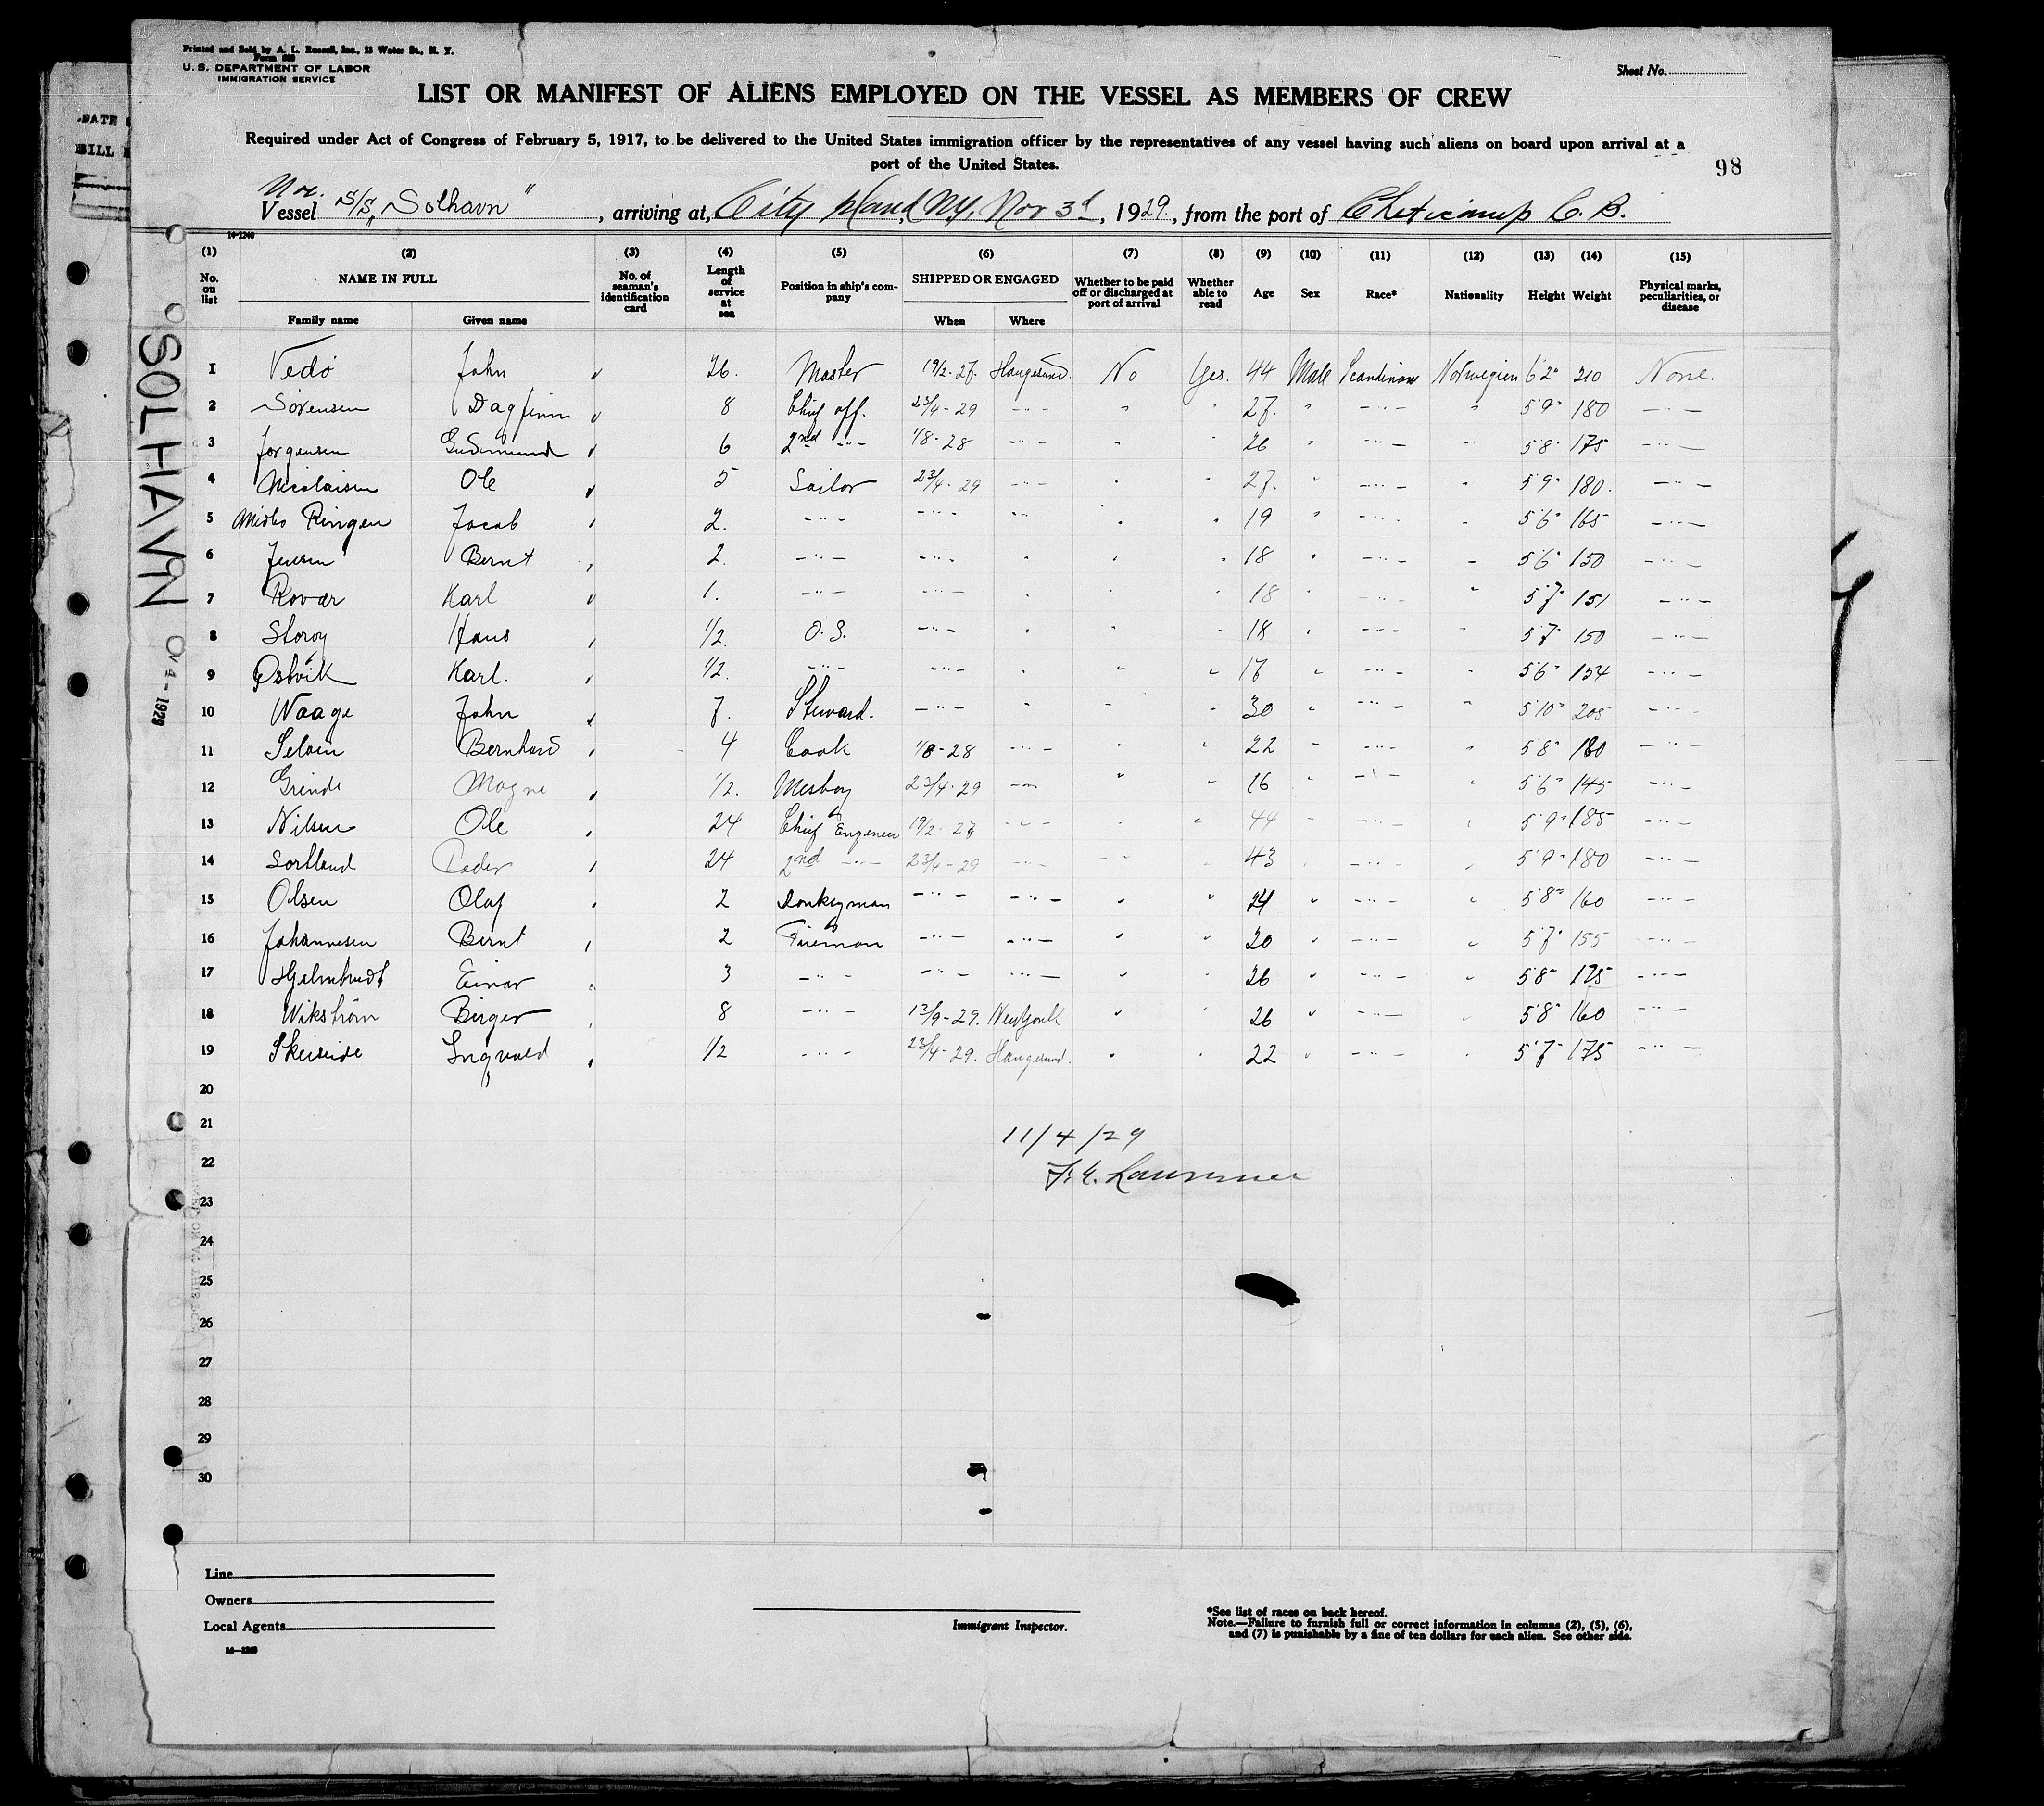 Printed and Sold by A. L. Russell, Inc., 13 Water St., N. Y.
Form 689
U. S. DEPARTMENT OF LABOR
IMMIGRATION SERVICE
Sheet No.
LIST OR MANIFEST OF ALIENS EMPLOYED ON THE VESSEL AS MEMBERS OF CREW
Required under Act of Congress of February 5, 1917, to be delivered to the United States immigration officer by the representatives of any vessel having such aliens on board upon arrival at a
port of the United States.
98
Nor.
Vessel S/S "Solhavn", arriving at, City Island, NY, Nov 3d, 1929, from the port of Cheticamp C. B.
14-1240
(1) (2) (3) (4) (5) (6) (7) (8) (9) (10) (11) (12) (13) (14) (15)
No. on list NAME IN FULL No. of seaman's identification card Length of service at sea Position in ship's company SHIPPED OR ENGAGED Whether to be paid off or discharged at port of arrival Whether able to read Age Sex Race* Nationality Height Weight Physical marks, peculiarities, or disease
Family name Given name When Where
1 Vedö John 26. Master 19/2-27. Haugesund. No Yes. 44 Male Scandinav Norwegien 6'2" 210 None.
2 Sörensen Dagfinn 8 Chief off. 23/4-29 -"- " " 27. " -"- " 5'9" 180 -"-
3 Jorgensen Gudmund 6 2nd -"- 1/8-28 -"- " " 26 " -"- " 5'8" 175 -"-
4 Nicolaisen Ole 5 Sailor 23/4-29 -"- " " 27. " -"- " 5'9" 180. -"-
5 Ringen Jacob 2. -"- -"- -"- " " 19 " -"- " 5'6" 165 -"-
6 Jensen Bernt 2. -"- -"- " " " 18 " -"- " 5'6" 150 -"-
7 Rovær Karl 1. -"- -"- " " " 18 " -"- " 5'7" 151 -"-
8 Storöy Hans 1/2. O. S. -"- " " " 18 " -"- " 5'7" 150 -"-
9 Østvik Karl. 1/2. -"- -"- " " " 17 " -"- " 5'6" 154 -"-
10 Waage John 7. Steward. -"- " " " 30 " -"- " 5'10" 205 -"-
11 Bernhard 4 Cook 1/8-28 -"- " " 22 " -"- " 5'8" 180 -"-
12 Grinde Magne 1/2. Mesboy 23/4-29 -"- " " 16 " -"- " 5'6" 145 -"-
13 Nilsen Ole 24 Chief Engeneer 19/2-27 -"- " " 44 " -"- " 5'9" 185 -"-
14 Sortland Peder 24 2nd -"- 23/4-29 -"- " " 43 " -"- " 5'9" 180 -"-
15 Olsen Olaf 2 Donkeyman -"- -"- " " 24 " -"- " 5'8" 160 -"-
16 Johannesen Bernt 2 Fireman -"- -"- " " 20 " -"- " 5'7" 155 -"-
17 Einar 3 -"- -"- -"- " " 26 " -"- " 5'8" 175 -"-
18 Wikström Birger 8 -"- 13/9-29. NewYork " " 26 " -"- " 5'8" 160 -"-
19 Skeiseide Ingvald 1/2 -"- 23/4-29. Haugesund. " " 22 " -"- " 5'7" 175 -"-
20
21
11/4/29
22
23
24
25
26
27
28
29
30
SOLHAVN
1929
Line
Owners
Local Agents
14-1240
Immigrant Inspector.
*See list of races on back hereof.
Note.—Failure to furnish full or correct information in columns (2), (5), (6),
and (7) is punishable by a fine of ten dollars for each alien. See other side.